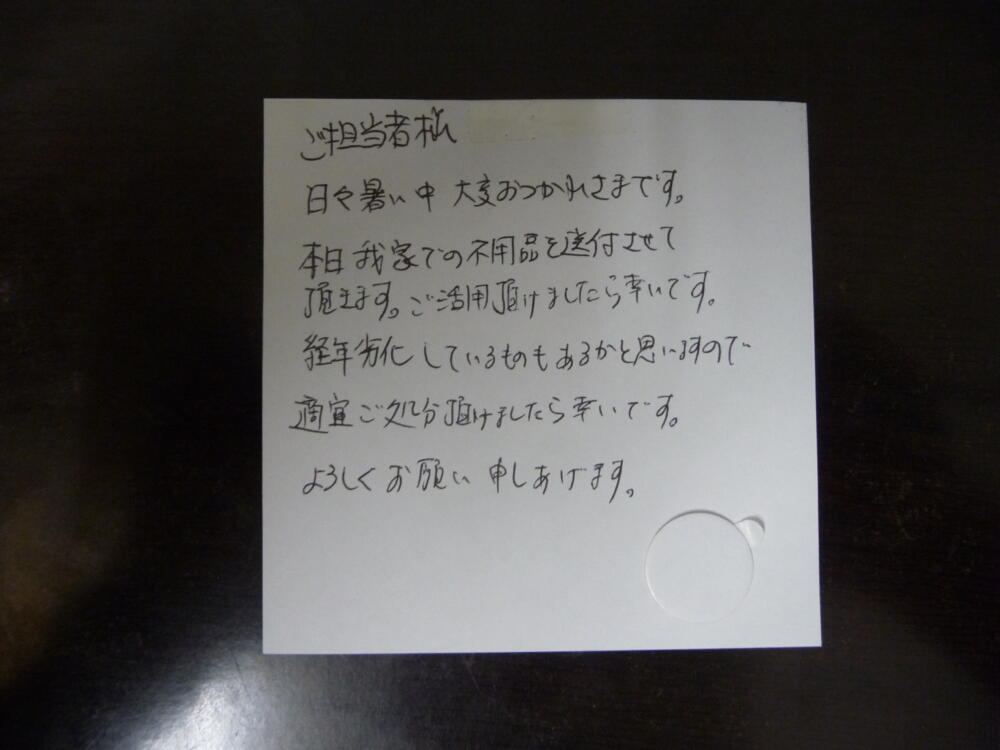 ご担当者様
日々暑い中 大変おつかれさまです。
本日 我家での不用品を送付させて
頂きます。ご活用頂けましたら幸いです。
経年劣化しているものもあるかと思いますので
適宜ご処分頂けましたら幸いです。
よろしくお願い申しあげます。